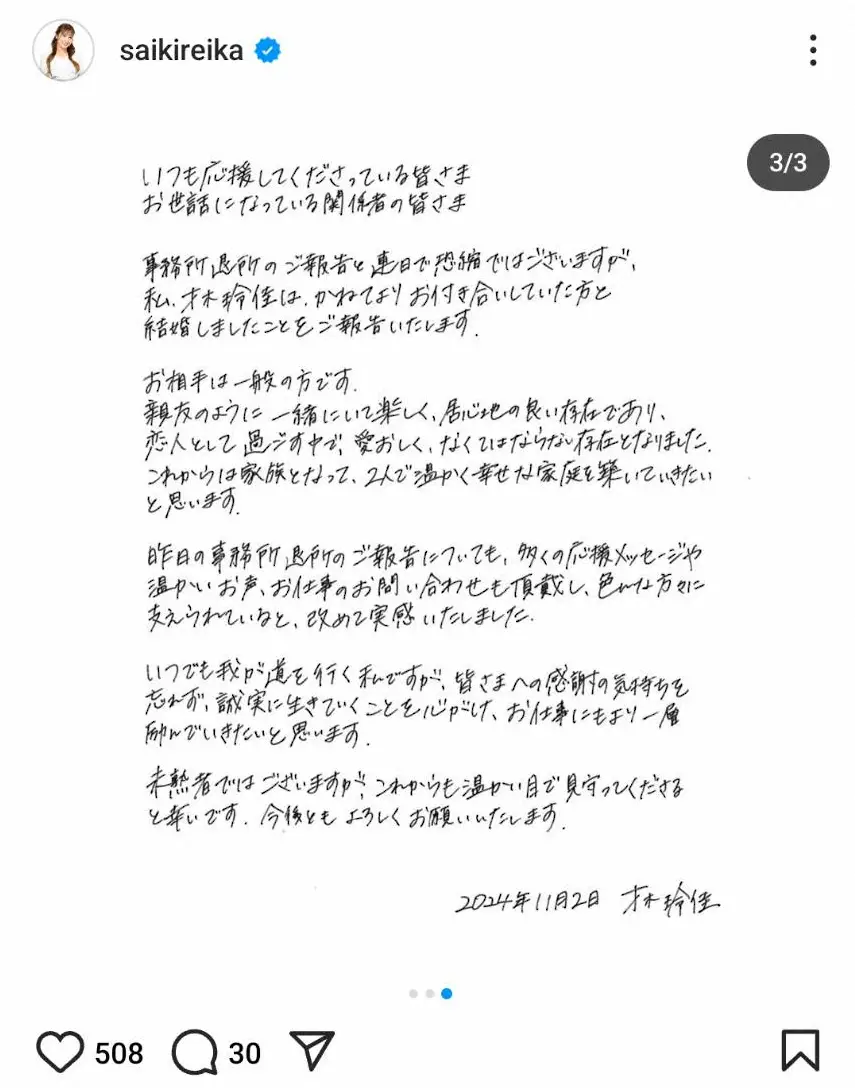 saikireika
3/3
いつも応援してくださっている皆さま
お世話になっている関係者の皆さま
事務所退所のご報告と連日で恐縮ではございますが、
私、才木玲佳は、かねてよりお付き合いしていた方と
結婚しましたことをご報告いたします。
お相手は一般の方です。
親友のように一緒にいて楽しく、居心地の良い存在であり、
恋人として過ごす中で、愛おしく、なくてはならない存在となりました。
これからは家族となって、2人で温かく幸せな家庭を築いていきたい
と思います。
昨日の事務所退所のご報告についても、多くの応援メッセージや
温かいお声、お仕事のお問い合わせも頂戴し、色んな方々に
支えられていると、改めて実感いたしました。
いつでも我が道を行く私ですが、皆さまへの感謝の気持ちを
忘れず、誠実に生きていくことを心がけ、お仕事にもより一層
励んでいきたいと思います。
未熟者ではございますが、これからも温かい目で見守ってくださる
と幸いです。今後ともよろしくお願いいたします。
2024年11月2日 才木玲佳
508
30